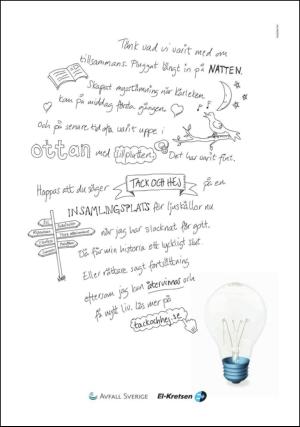 Tänk vad vi varit med om
tillsammans. Pluggat långt in på NATTEN.
Skapat mysstämning när kärleken
kom på middag första gången.
Och på senare tid ofta varit uppe i
ottan med sillplatten. Det har varit fint.
Hoppas att du säger TACK OCH HEJ på en
INSAMLINGSPLATS för ljuskällor nu
när jag har slocknat för gott.
Då får min historia ett lyckligt slut.
Eller rättare sagt fortsättning
eftersom jag kan återvinnas och
få nytt liv. Läs mer på
tackochhej.se
AVFALL SVERIGE El-Kretsen